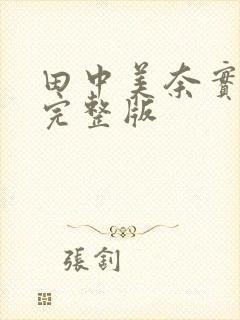 田中美奈實
完整版
張釗